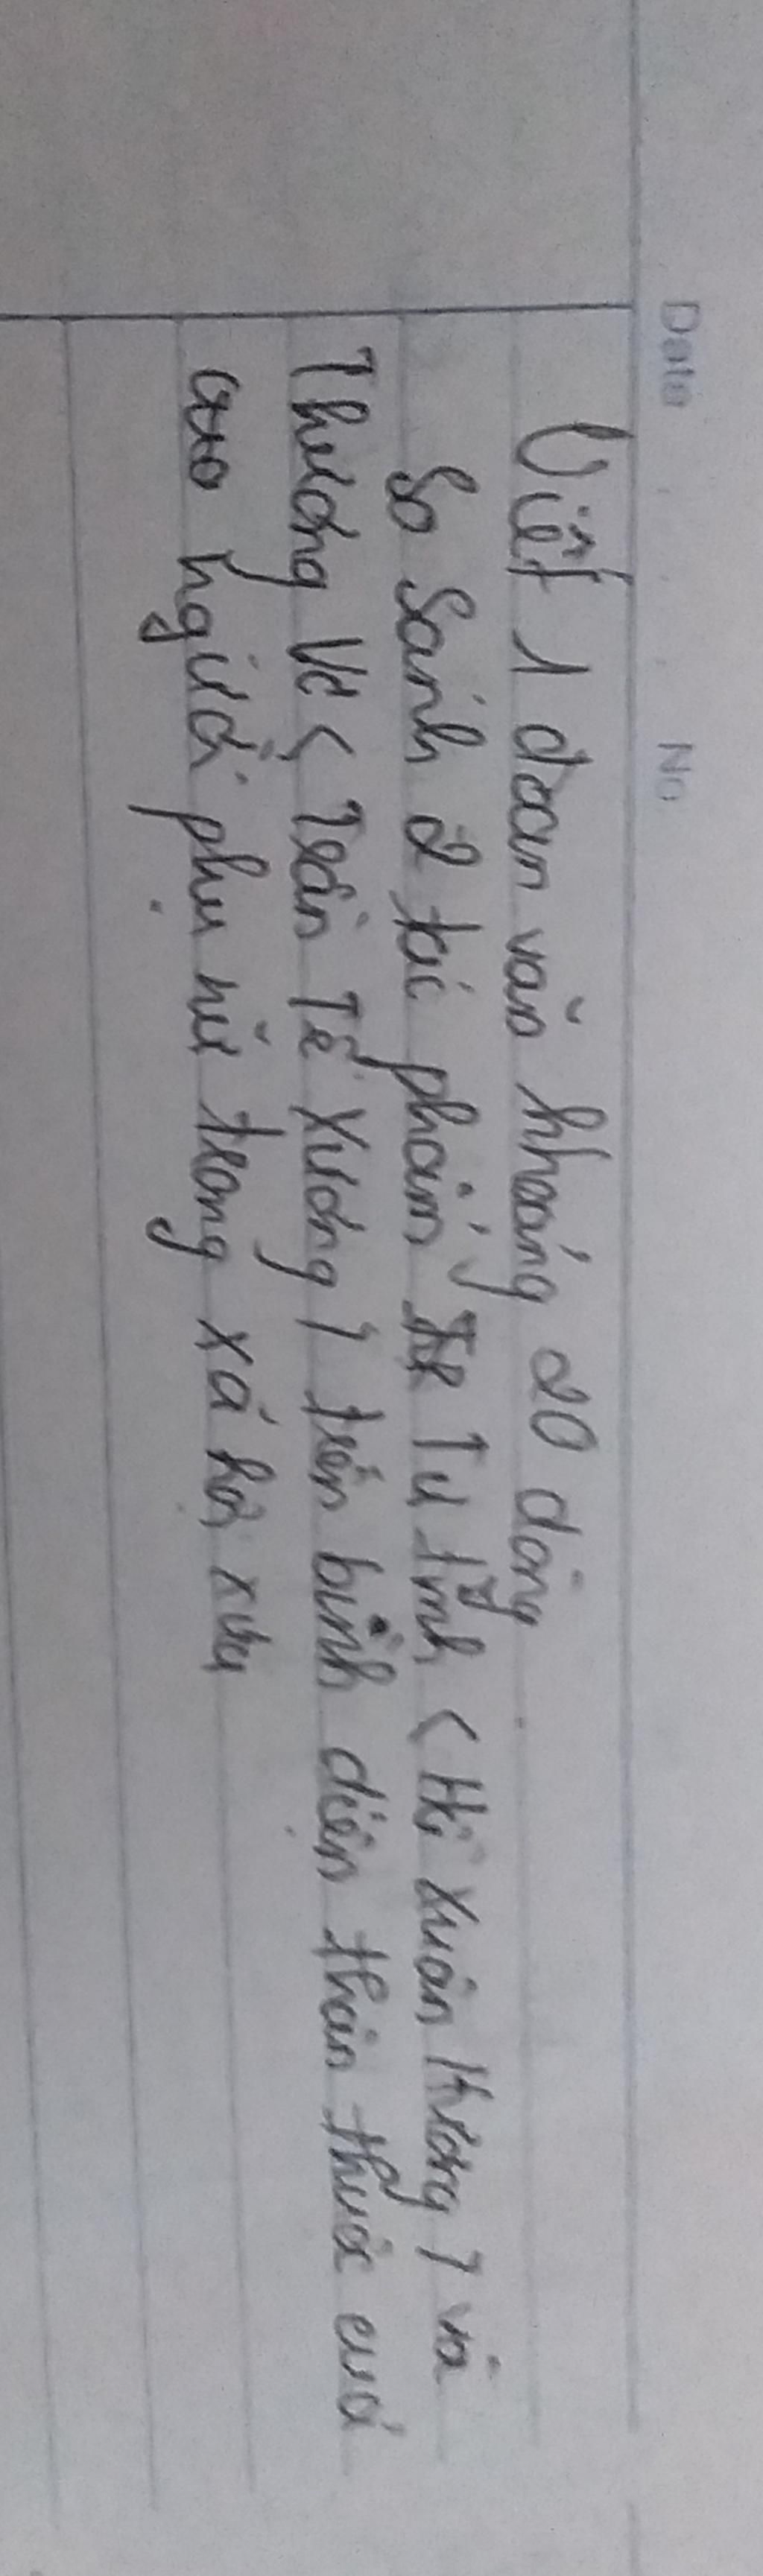 Date No
Viết 1 đoạn văn khoảng 20 dòng
So sánh 2 tác phẩm Tự tình (Hồ Xuân Hương) và
Thương Vợ (Trần Tế Xương) trên bình diện thân thuộc
người phụ nữ trong xã hội xưa